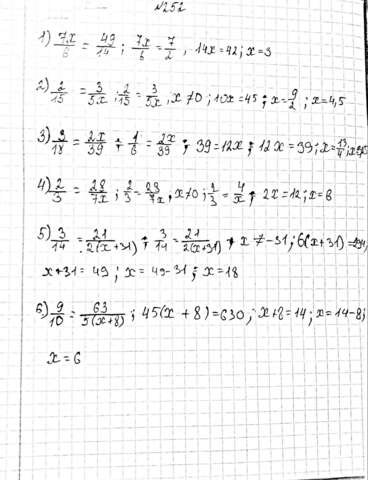 №252
1) 7x/6 = 49/14 ; 7x/6 = 7/2 , 14x = 42 ; x = 3
2) 2/15 = 3/5x ; 2/15 = 3/5x , x ≠ 0 ; 10x = 45 ; x = 9/2 ; x = 4,5
3) 3/18 = 2x/39 ; 1/6 = 2x/39 ; 39 = 12x ; 12x = 39 ; x = 13/4 ;
4) 2/3 = 28/7x ; 2/3 = 28/7x , x ≠ 0 ; 2/3 = 4/x ; 2x = 12 ; x = 6
5) 3/14 = 21/2(x+31) ; 3/14 = 21/2(x+31) , x ≠ -31 ; 6(x+31) = 294,
x+31 = 49 ; x = 49-31 ; x = 18
6) 9/10 = 63/5(x+8) ; 45(x+8) = 630 ; x+8 = 14 ; x = 14-8 ;
x = 6